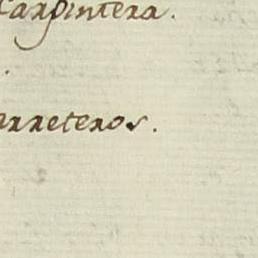 Carpintera.
arreteros.